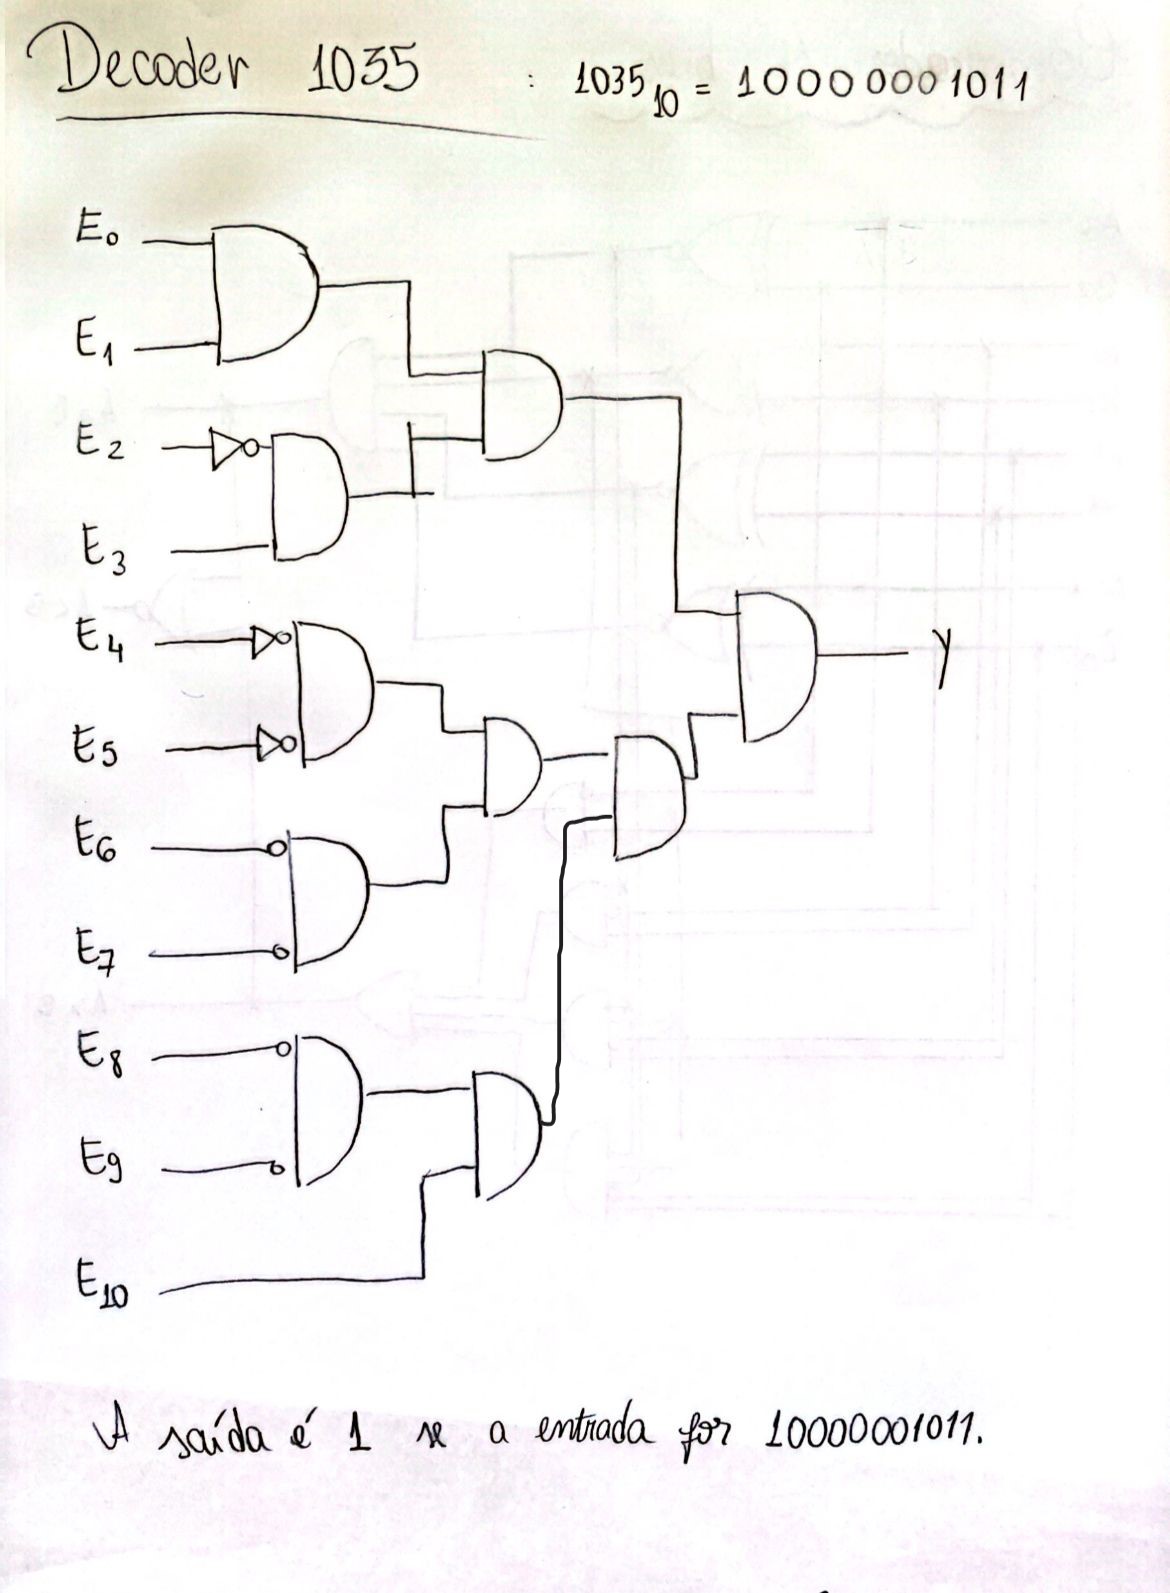 Decoder 1035 : 1035₁₀ = 10000001011
E₀
E₁
E₂
E₃
E₄
y
E₅
E₆
E₇
E₈
E₉
E₁₀
A saída é 1 se a entrada for 10000001011.